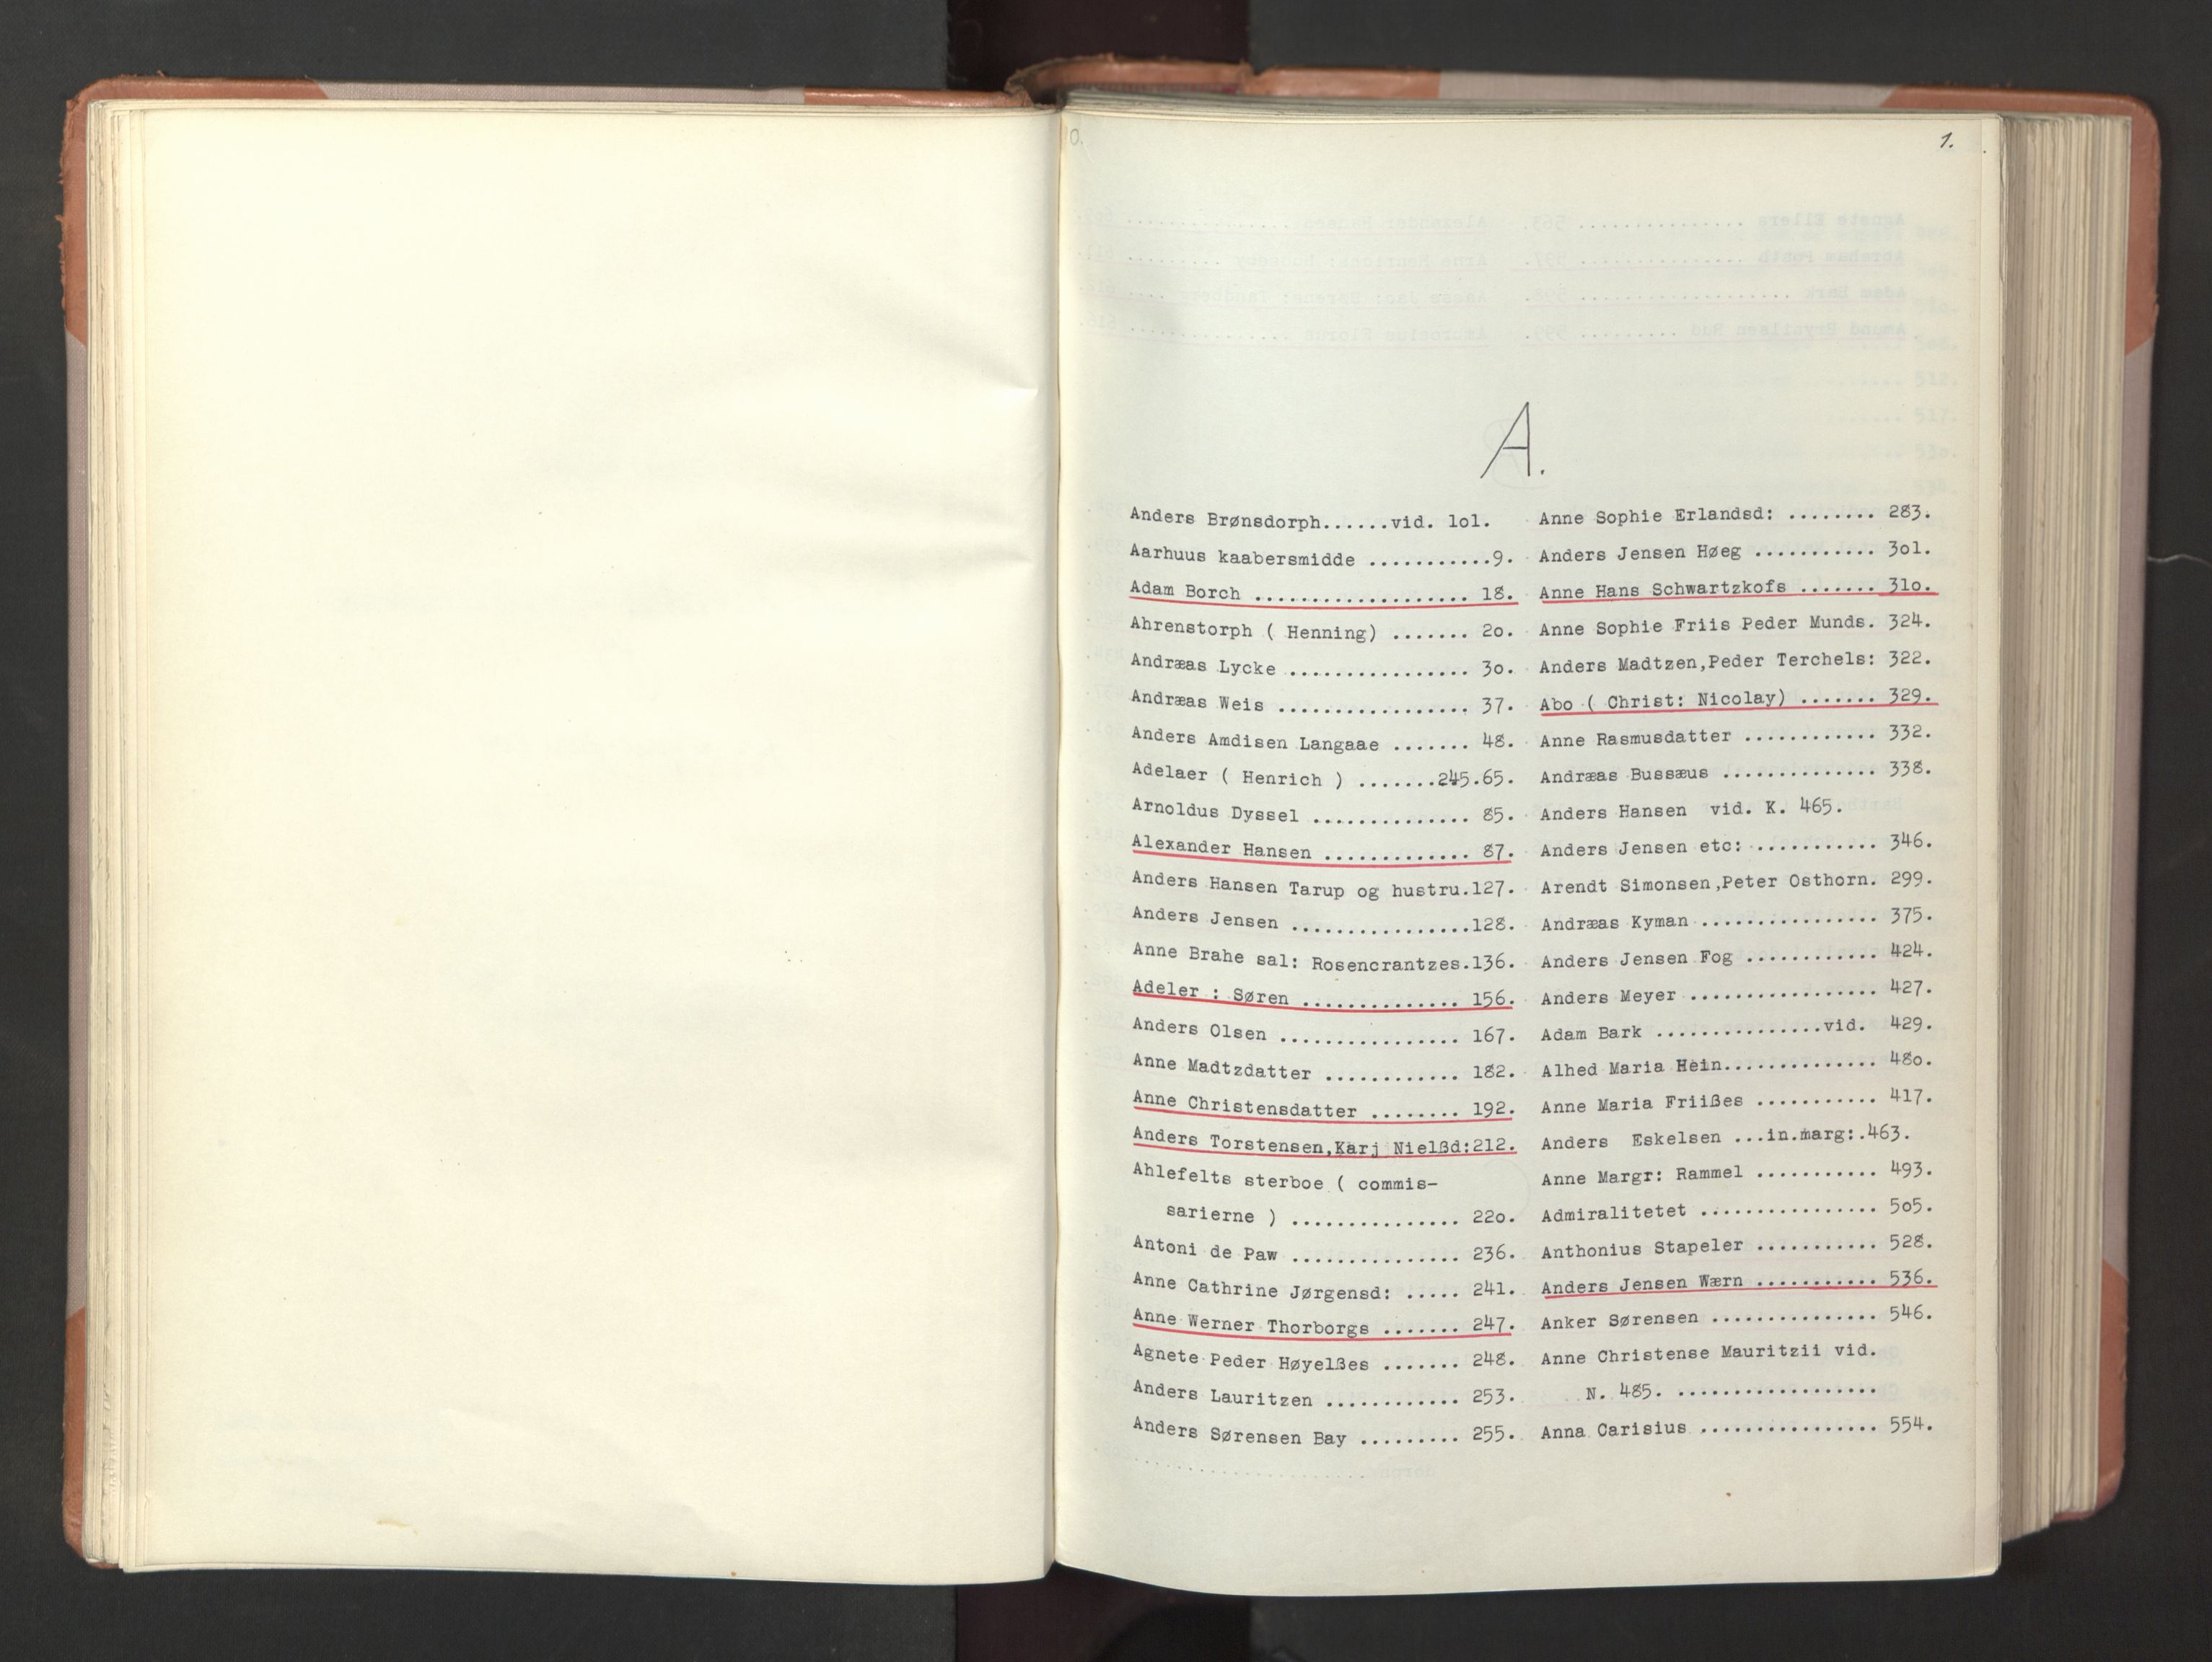 1.
A.
Anders Brønsdorph......vid. lol.
Aarhuus kaabersmidde ...........9.
Adam Borch ................... 18.
Ahrenstorph ( Henning) ....... 2o.
Andræas Lycke ................ 3o.
Andræas Weis ................. 37.
Anders Amdisen Langaae ....... 48.
Adelaer ( Henrich ) .......245.65.
Arnoldus Dyssel .............. 85.
Alexander Hansen ............. 87.
Anders Hansen Tarup og hustru.127.
Anders Jensen ................128.
Anne Brahe sal: Rosencrantzes.136.
Adeler : Søren .............. 156.
Anders Olsen ................ 167.
Anne Madtzdatter ............ 182.
Anne Christensdatter ........ 192.
Anders Torstensen,Karj Nielßd:212.
Ahlefelts sterboe ( commis-
sarierne ) ............... 22o.
Antoni de Paw ............... 236.
Anne Cathrine Jørgensd: ..... 241.
Anne Werner Thorborgs ....... 247.
Agnete Peder Høyelßes ....... 248.
Anders Lauritzen ............ 253.
Anders Sørensen Bay ......... 255.
Anne Sophie Erlandsd: ........ 283.
Anders Jensen Høeg ........... 3ol.
Anne Hans Schwartzkofs ....... 31o.
Anne Sophie Friis Peder Munds. 324.
Anders Madtzen,Peder Terchels: 322.
Abo ( Christ: Nicolay) ....... 329.
Anne Rasmusdatter ............ 332.
Andræas Bussæus .............. 338.
Anders Hansen vid. K. 465.
Anders Jensen etc: ........... 346.
Arendt Simonsen,Peter Osthorn. 299.
Andræas Kyman ................ 375.
Anders Jensen Fog ............ 424.
Anders Meyer ................. 427.
Adam Bark ...............vid. 429.
Alhed Maria Hein.............. 48o.
Anne Maria Friißes ........... 417.
Anders Eskelsen ...in.marg:.463.
Anne Margr: Rammel ........... 493.
Admiralitetet ................ 5o5.
Anthonius Stapeler ........... 528.
Anders Jensen Wærn ........... 536.
Anker Sørensen ............... 546.
Anne Christense Mauritzii vid.
N. 485. ..................
Anna Carisius ................ 554.